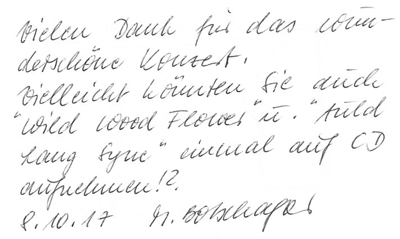 Vielen Dank für das wun-
derschöne Konzert.
Vielleicht könnten Sie auch
"Wild Wood Flower" u. "Auld
Lang Syne" einmal auf CD
aufnehmen!?.
8.10.17